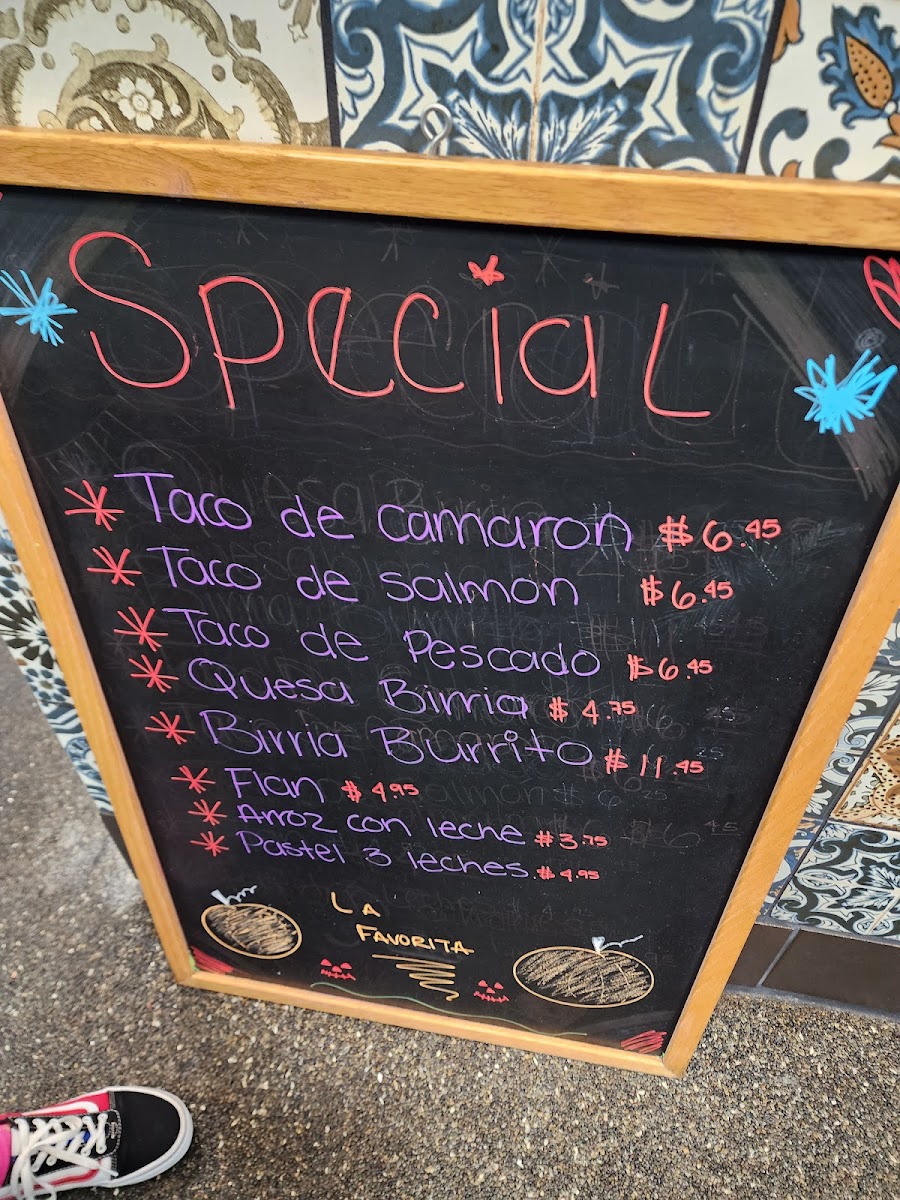 Special
* Taco de camaron $6.45
* Taco de salmon $6.45
* Taco de Pescado $6.45
* Quesa Birria $4.75
* Birria Burrito $11.45
* Flan $4.95
* Arroz con leche $3.75
* Pastel 3 leches $4.95
LA
FAVORITA